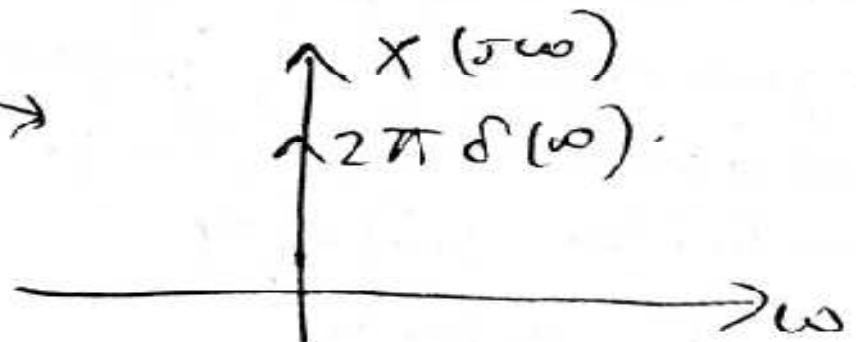 X (jω)
2π δ(ω).
ω